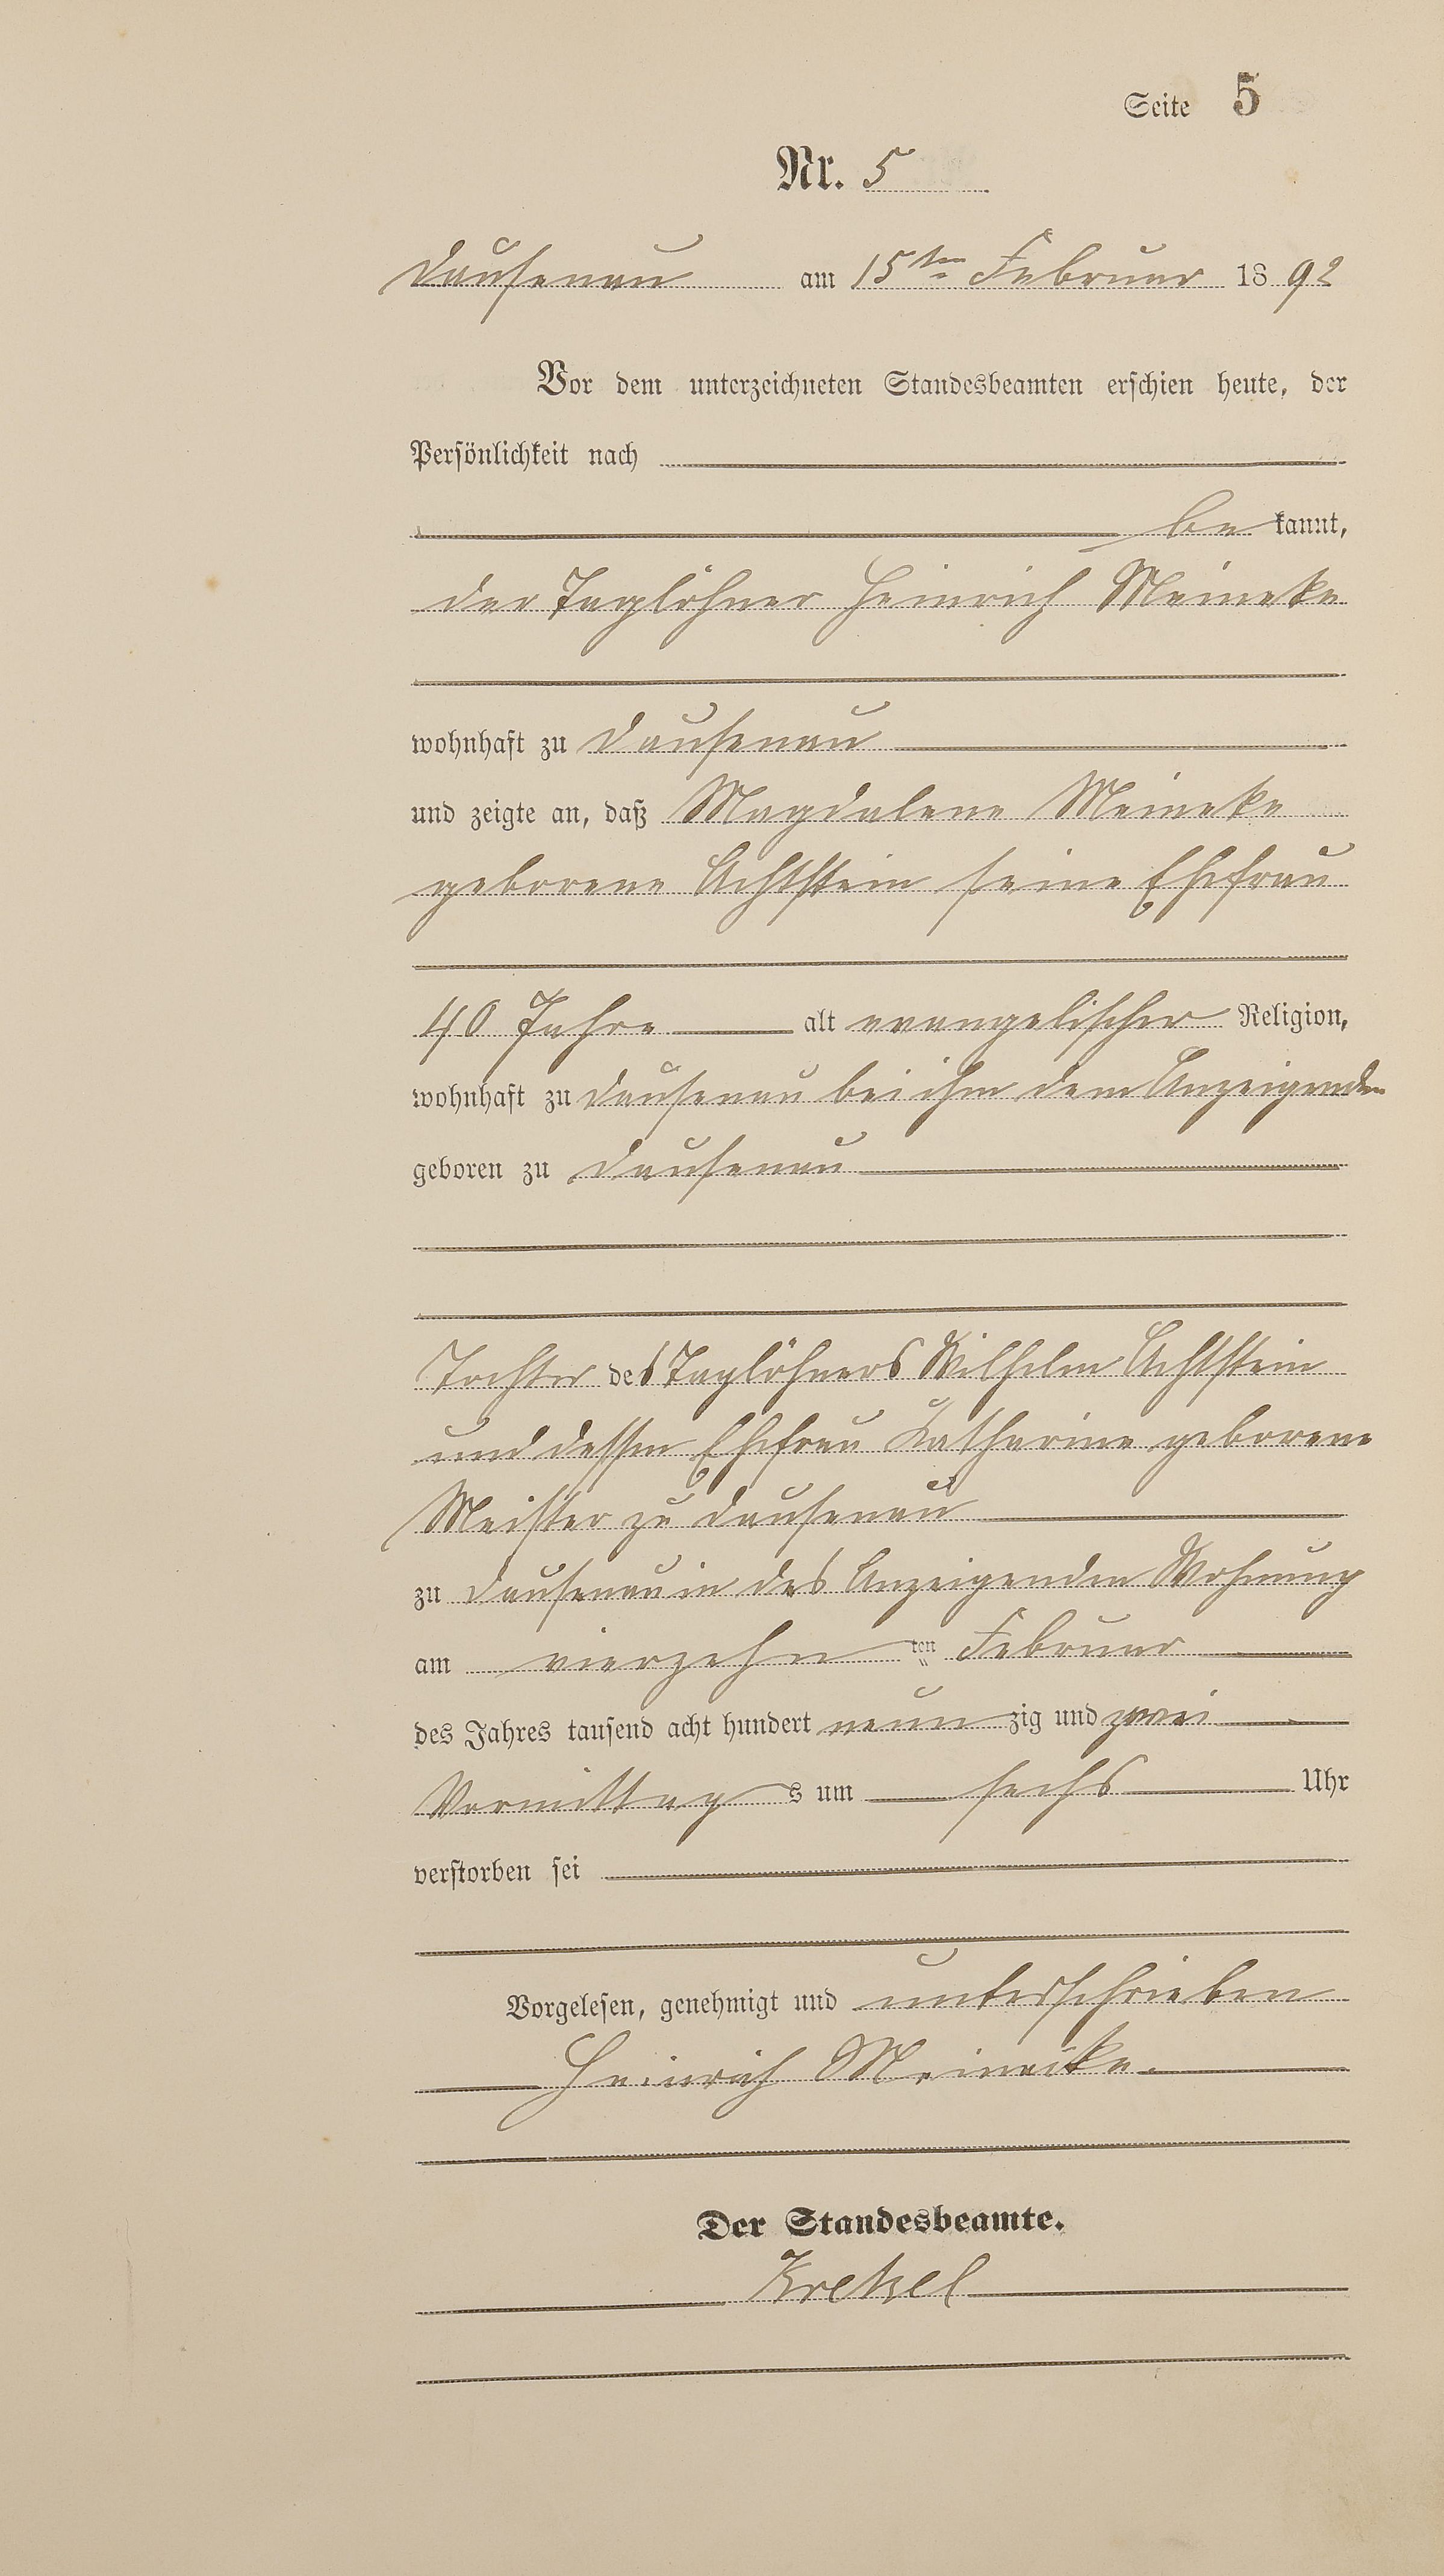 Seite 5
Nr. 5
Dausenau am 15ten Februar 1892
Vor dem unterzeichneten Standesbeamten erschien heute, der
Persönlichkeit nach
be kannt,
der Taglöhner Heinrich Meineke
wohnhaft zu Dausenau
und zeigte an, daß Magdalene Meineke
geborene Achtstein seine Ehefrau
40 Jahre alt evangelischer Religion,
wohnhaft zu Dausenau bei ihm dem Anzeigenden
geboren zu Dausenau
Tochter des Taglöhners Wilhelm Achtstein
und dessen Ehefrau Katharine geborene
Meister zu Dausenau
zu Dausenau in des Anzeigenden Wohnung
am vierzehn ten Februar
des Jahres tausend acht hundert neun zig und zwei
Vormittag s um sechs Uhr
verstorben sei
Vorgelesen, genehmigt und unterschrieben
Heinrich Meinecke.
Der Standesbeamte.
Krekel